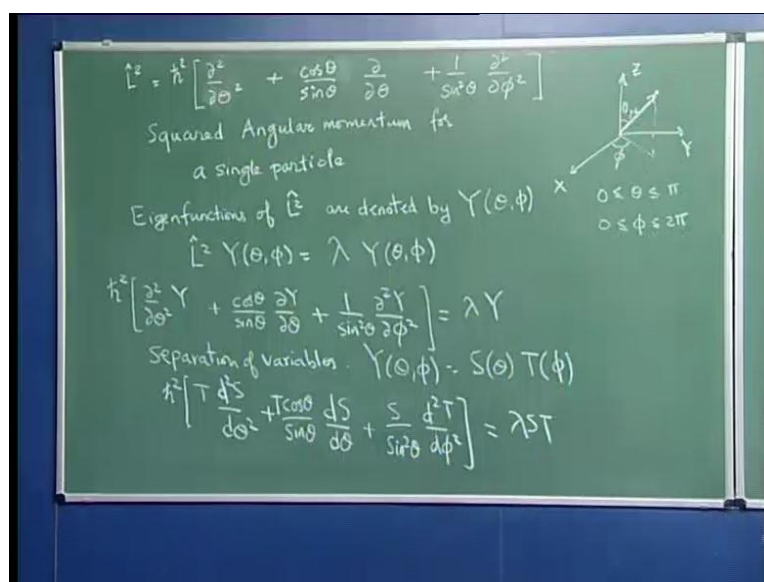 L̂² = ħ² [ ∂²/∂θ² + cosθ/sinθ ∂/∂θ + 1/sin²θ ∂²/∂ϕ² ]
Squared Angular momentum for
a single particle
Eigenfunctions of L̂² are denoted by Y(θ,ϕ)
L̂² Y(θ,ϕ) = λ Y(θ,ϕ)
ħ² [ ∂²/∂θ² Y + cosθ/sinθ ∂Y/∂θ + 1/sin²θ ∂²Y/∂ϕ² ] = λY
Separation of variables. Y(θ,ϕ) = S(θ) T(ϕ)
ħ² [ T d²S/dθ² + T cosθ/sinθ dS/dθ + S/sin²θ d²T/dϕ² ] = λST
Z
θ
Y
ϕ
X
0 ≤ θ ≤ π
0 ≤ ϕ ≤ 2π